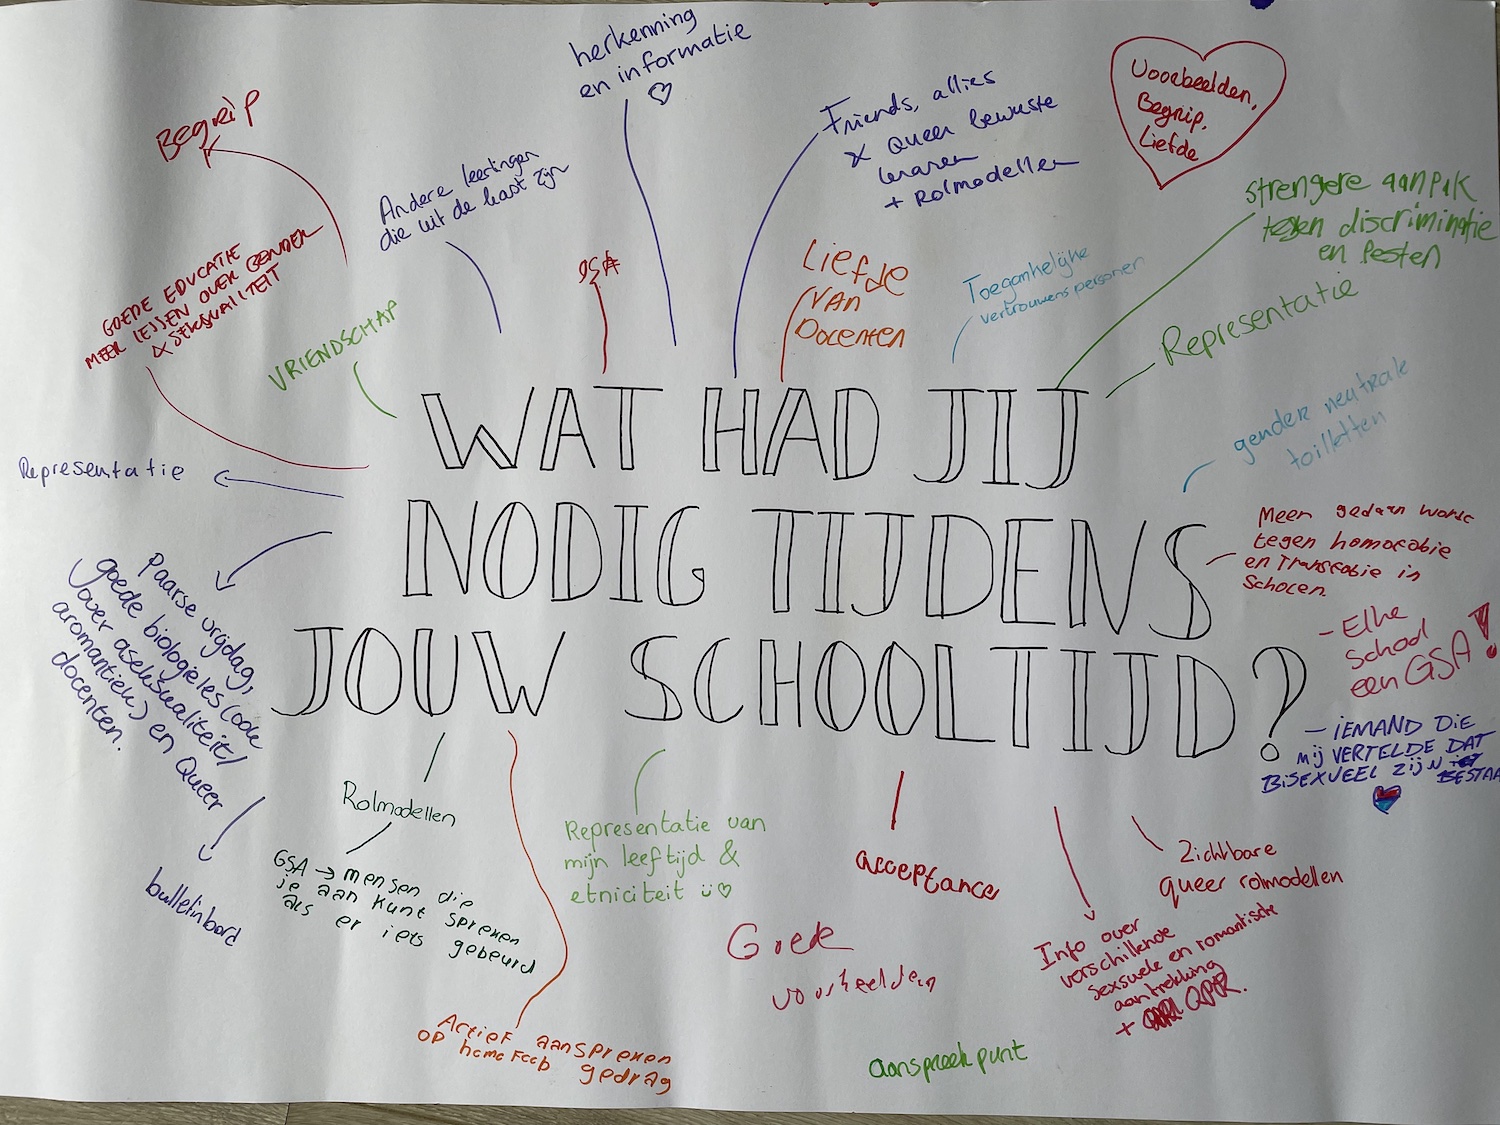 herkenning
en informatie
Begrip
Andere leerlingen
die uit de kast zijn
Friends, allies
& Queer bewuste
leraren
+ Rolmodellen
Voorbeelden,
Begrip,
Liefde
strengere aanpak
tegen discriminatie
en Pesten
GOEDE EDUCATIE
MEER LESSEN OVER GENDER
& SEKSUALITEIT
VRIENDSCHAP
GSA
Liefde
VAN
Docenten
Toegankelijke
vertrouwenspersonen
Representatie
gender neutrale
toiletten
WAT HAD JIJ
NODIG TIJDENS
JOUW SCHOOLTIJD?
Representatie
Paarse vrijdag,
goede biologieles (ook
over aseksualiteit/
aromantiek) en Queer
docenten.
bulletinbord
Meer gedaan wordt
tegen homofobie
en Transfobie in
Scholen.
- Elke
School
een GSA!
- IEMAND DIE
MIJ VERTELDE DAT
BISEXUEEL ZIJN BESTAA
Rolmodellen
GSA → mensen die
je aan kunt spreken
als er iets gebeurd
Actief aanspreken
op homofoob gedrag
Representatie van
mijn leeftijd &
etniciteit ü♡
acceptance
Goede
voorbeelden
aanspreekpunt
Info over
verschillende
seksuele en romantische
aantrekking
+ QPR.
Zichtbare
queer rolmodellen